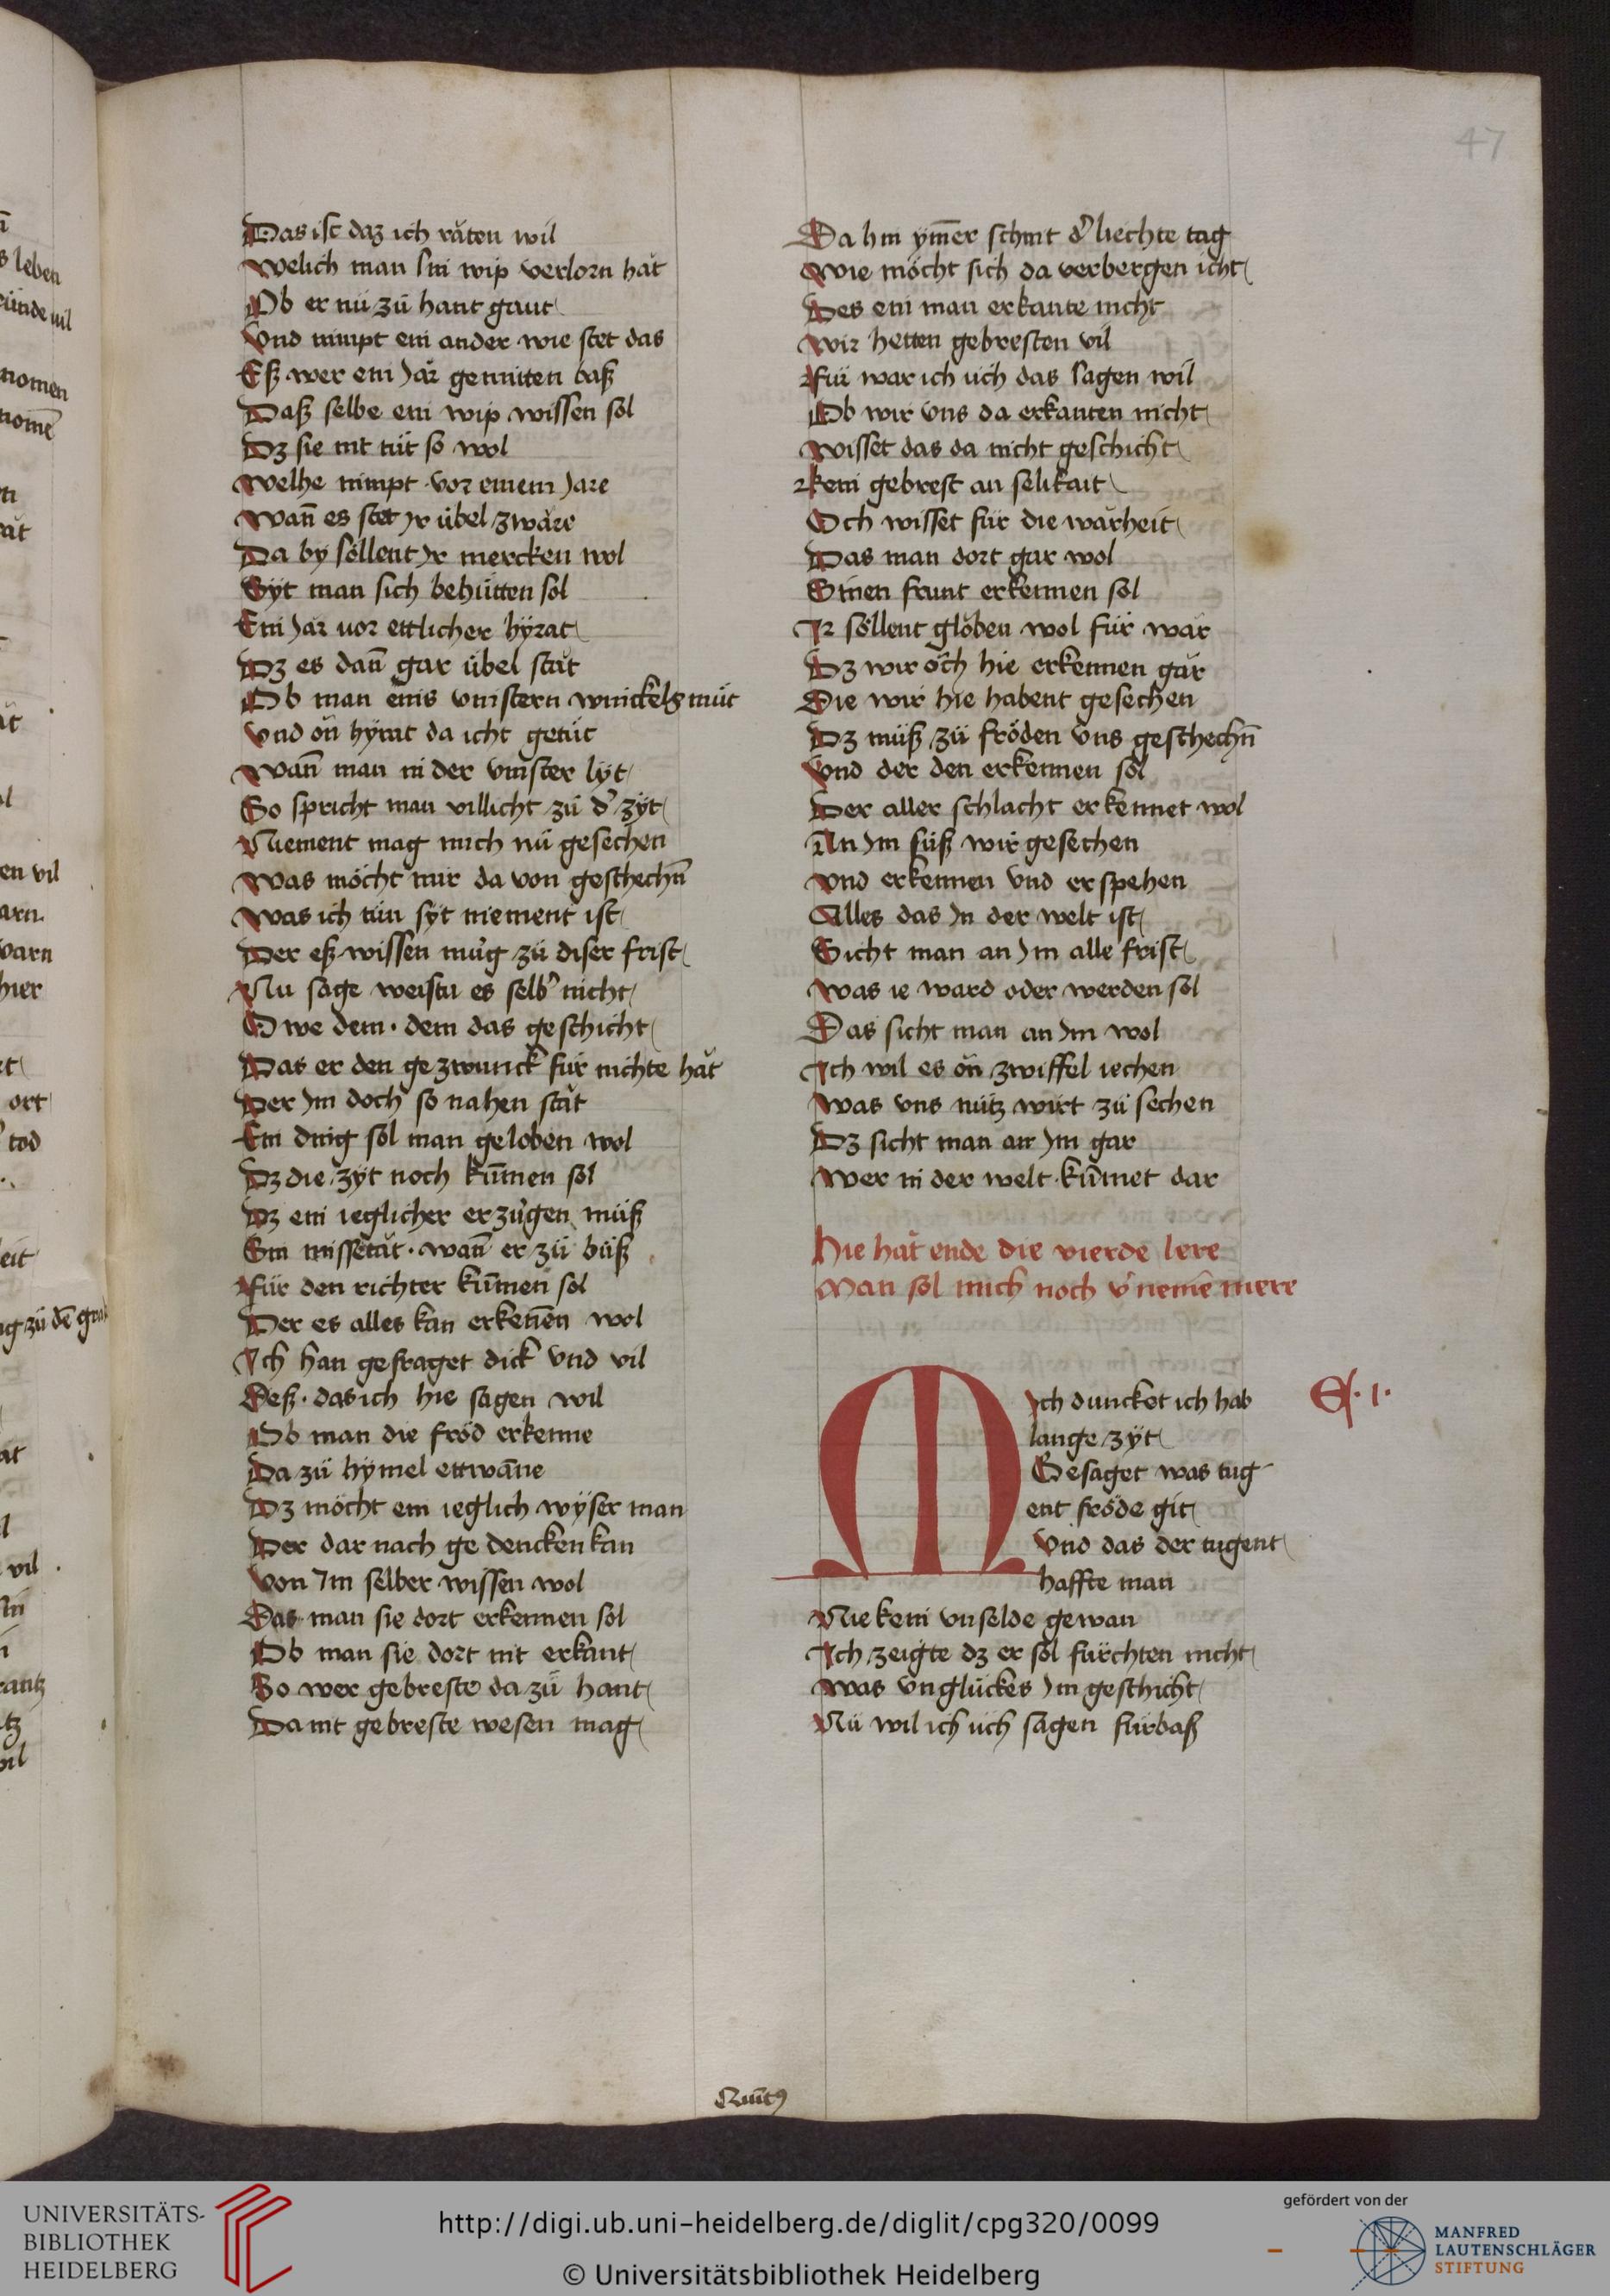 47
Das ist daz ich räten wil
Welich man sin wip verlorn hät
Ob er nü zü hant gaut
Vnd nimpt ein ander wie stet das
Eß wer ein Jär gemitten baß
Daß selbe ein wip wissen sol
Dz sie nit tüt so wol
Welhe nimpt vor einem Jare
Wañ es stet Jr übel zwäre
Da by söllent Jr mercken wol
Syt man sich behütten sol
Ein Jär vor ettlicher hyrat
Dz es dañ gar übel stät
Ob man einis vinstern winckels müt
Vnd on hyrat da icht getüt
Wañ man in der vinster lyt
So spricht man villicht zü d' zyt
Niement mag mich nü gesechen
Was möcht mir da von geschechñ
Was ich tün syt niement ist
Der eß wissen müg zü diser frist
Nu sage weistu es selb' nicht
O we dem · dem das geschicht
Das er den gezwunck für nichte hät
Der Jm doch so nahen stät
Ein ding sol man geloben wol
Dz die zyt noch kum̄en sol
Dz ein ieglicher erzügen müß
Sin missetät · wañ er zü büß
Für den richter kum̄en sol
Der es alles kan erken̄en wol
Ich han gefraget dick vnd vil
Deß · das ich hie sagen wil
Ob man die fröd erkenne
Da zü hymel ettwan̄e
Dz möcht ein ieglich wyser man
Der dar nach ge dencken kan
Von Jm selber wissen wol
Das man sie dort erkennen sol
Ob man sie dort nit erkant
So wer gebreste da zü hant
Da nit gebreste wesen mag
Da hin ym̄er schint d' liechte tag
Wie möcht sich da verbergen icht
Des ein man erkante nicht
Wir hetten gebresten vil
Für war ich üch das sagen wil
Ob wir vns da erkanten nicht
Wisset das da nicht geschicht
kein gebrest an selikait
Och wisset für die wärheit
Das man dort gar wol
Sinen frunt erkennen sol
Ir söllent glöben wol für wär
Dz wir öch hie erkennen gär
Die wir hie habent gesechen
Dz müß zü fröden vns geschechñ
Vnd der den erkennen sol
Der aller schlacht erkennet wol
An Jm süß wir gesechen
Vnd erkennen vnd erspehen
Alles das Jn der welt ist
Sicht man an Jm alle frist
Was ie ward oder werden sol
Das sicht man an Jm wol
Ich wil es on zwiffel iechen
Was vns nütz wirt zü sechen
Dz sicht man an Jm gar
Wer in der welt kum̄et dar
Hie hät ende die vierde lere
Man sol mich noch v'nemē mere
Mich duncket ich hab
lange zyt
Gesaget was tug
ent fröde git
Vnd das der tugent
haffte man
Nie kein vnselde gewan
Ich zeigte dz er sol fürchten nicht
Was vnglückes Jm geschicht
Nü wil ich üch sagen fürbaß
UNIVERSITÄTS-
BIBLIOTHEK
HEIDELBERG
http://digi.ub.uni-heidelberg.de/diglit/cpg320/0099
© Universitätsbibliothek Heidelberg
gefördert von der
MANFRED
LAUTENSCHLÄGER
STIFTUNG